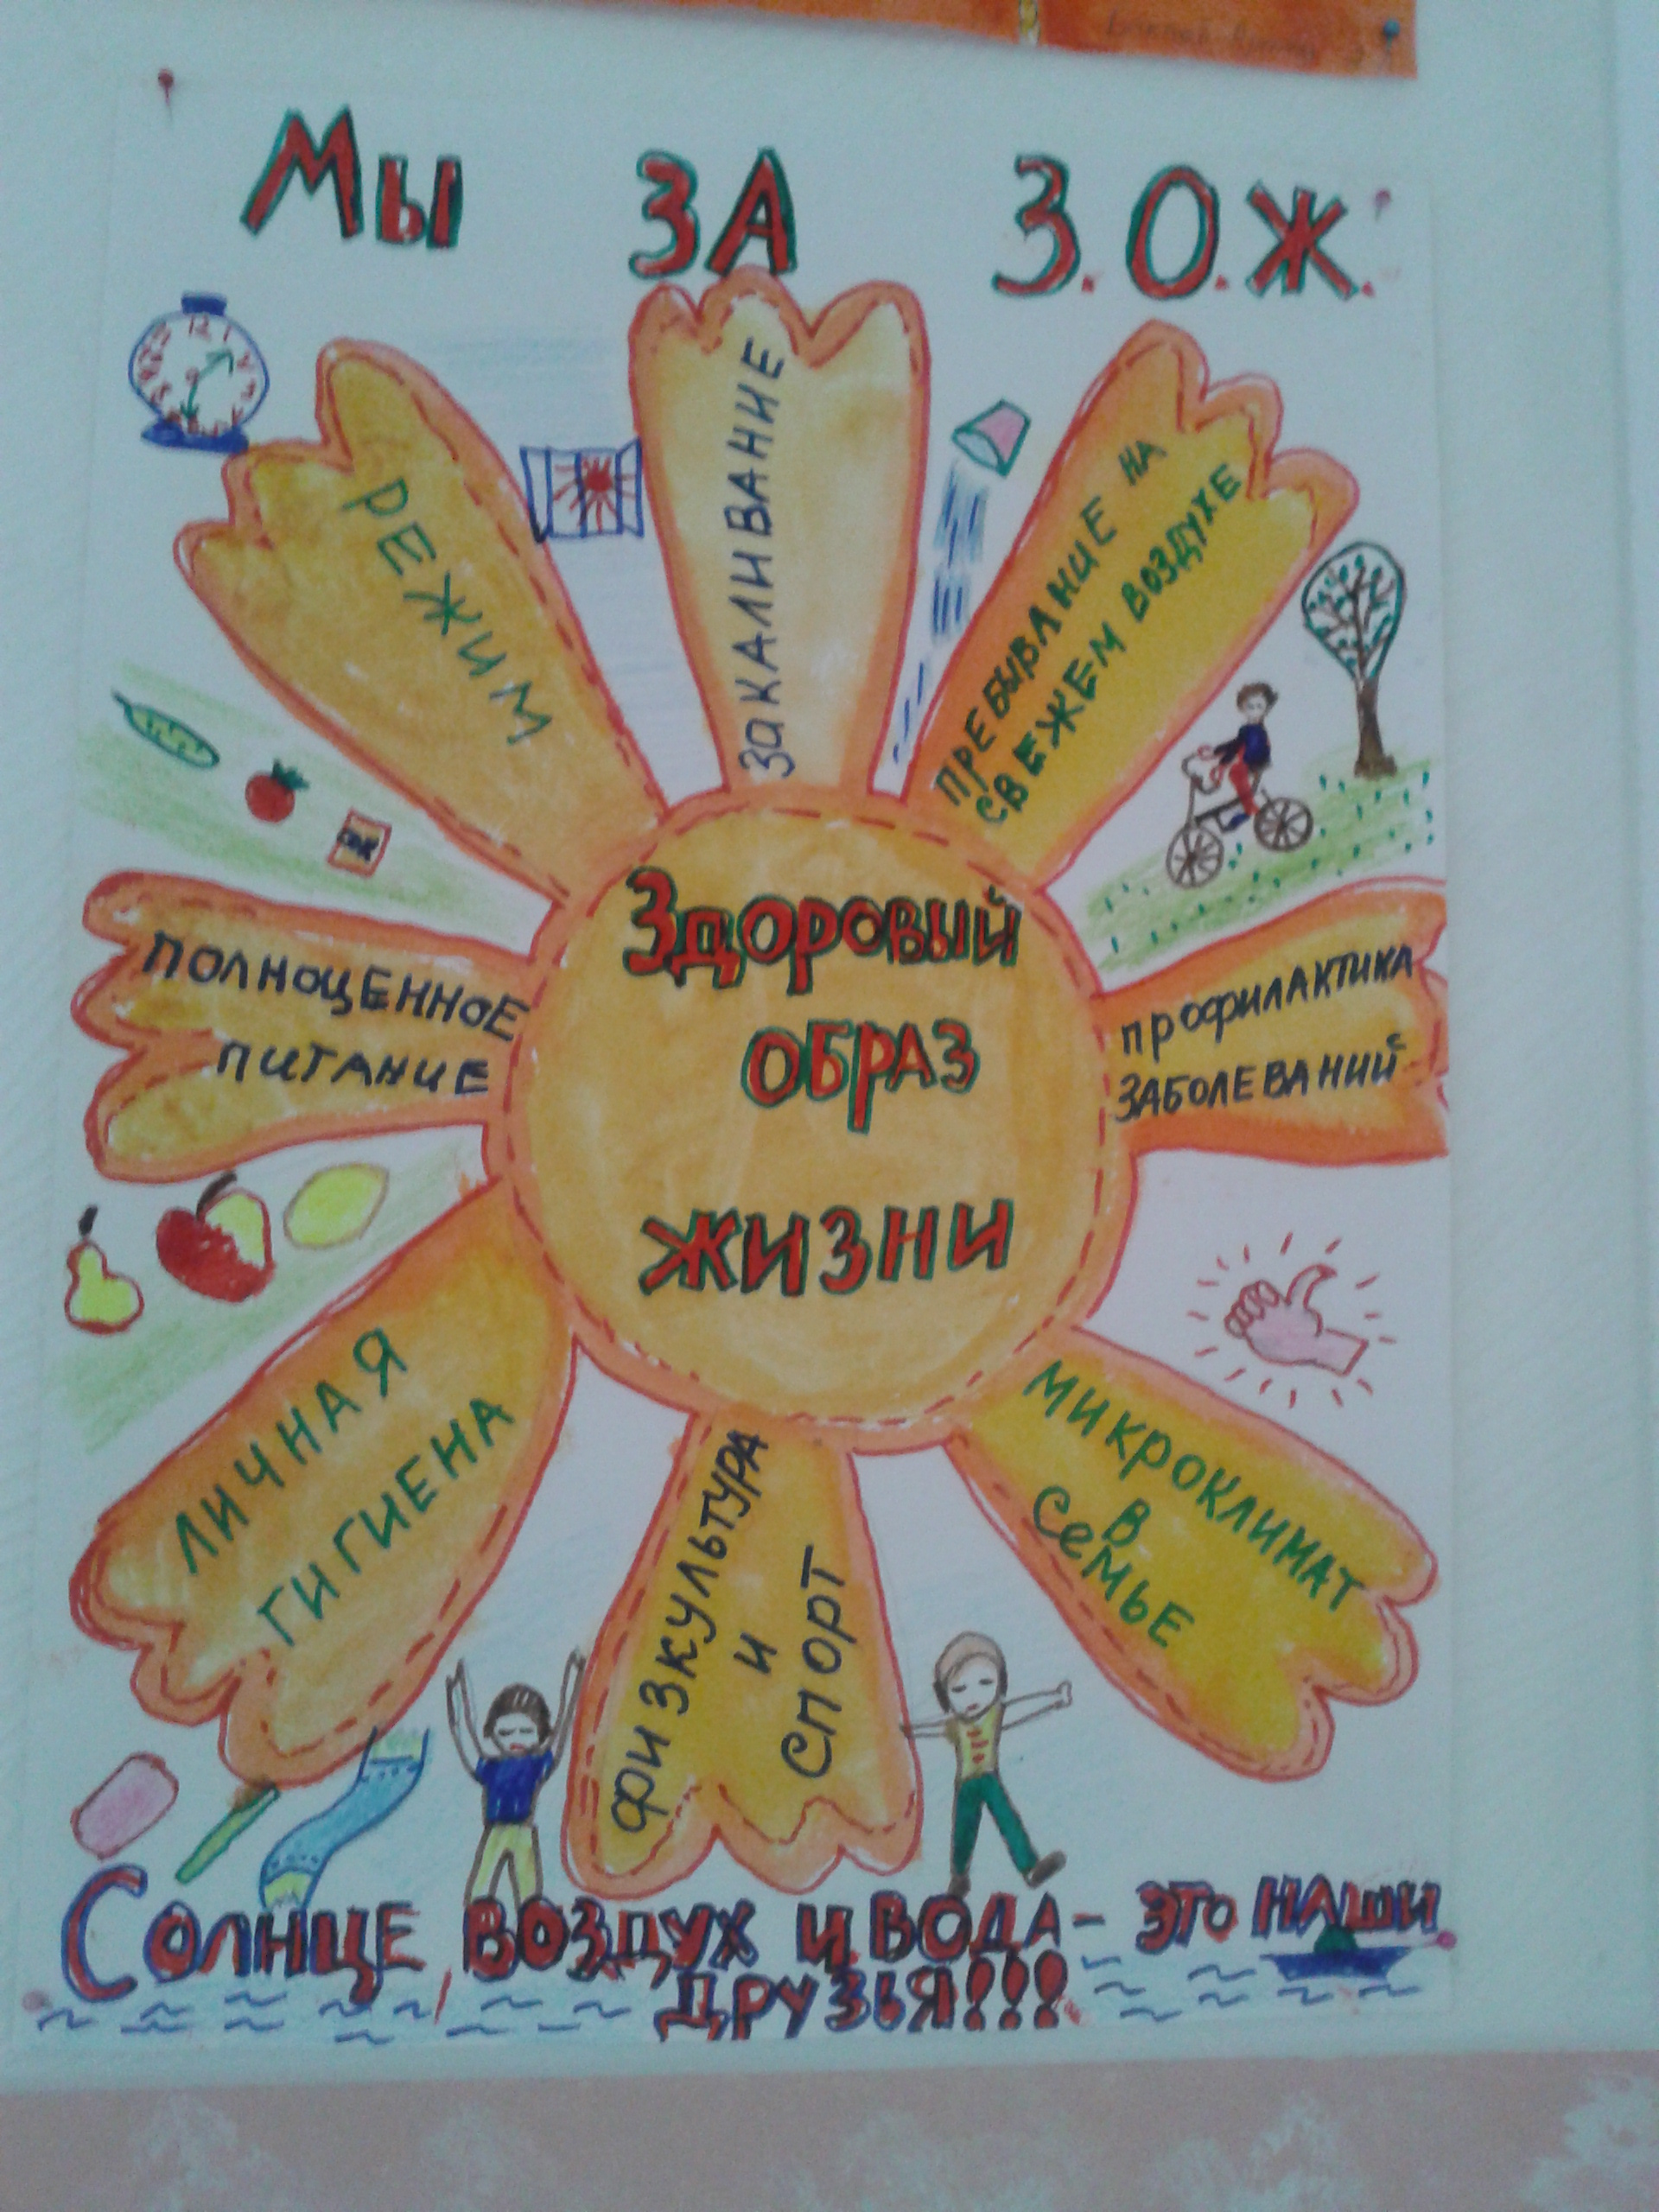 Мы ЗА З.О.Ж.
РЕЖИМ
ЗАКАЛИВАНИЕ
ПРЕБЫВАНИЕ НА
СВЕЖЕМ ВОЗДУХЕ
Здоровый
ОБРАЗ
ЖИЗНИ
ПОЛНОЦЕННОЕ
ПИТАНИЕ
ПРОФИЛАКТИКА
ЗАБОЛЕВАНИЙ
ЛИЧНАЯ
ГИГИЕНА
ФИЗКУЛЬТУРА
И
СПОРТ
МИКРОКЛИМАТ
В
СЕМЬЕ
СОЛНЦЕ, ВОЗДУХ И ВОДА - ЭТО НАШИ
ДРУЗЬЯ!!!